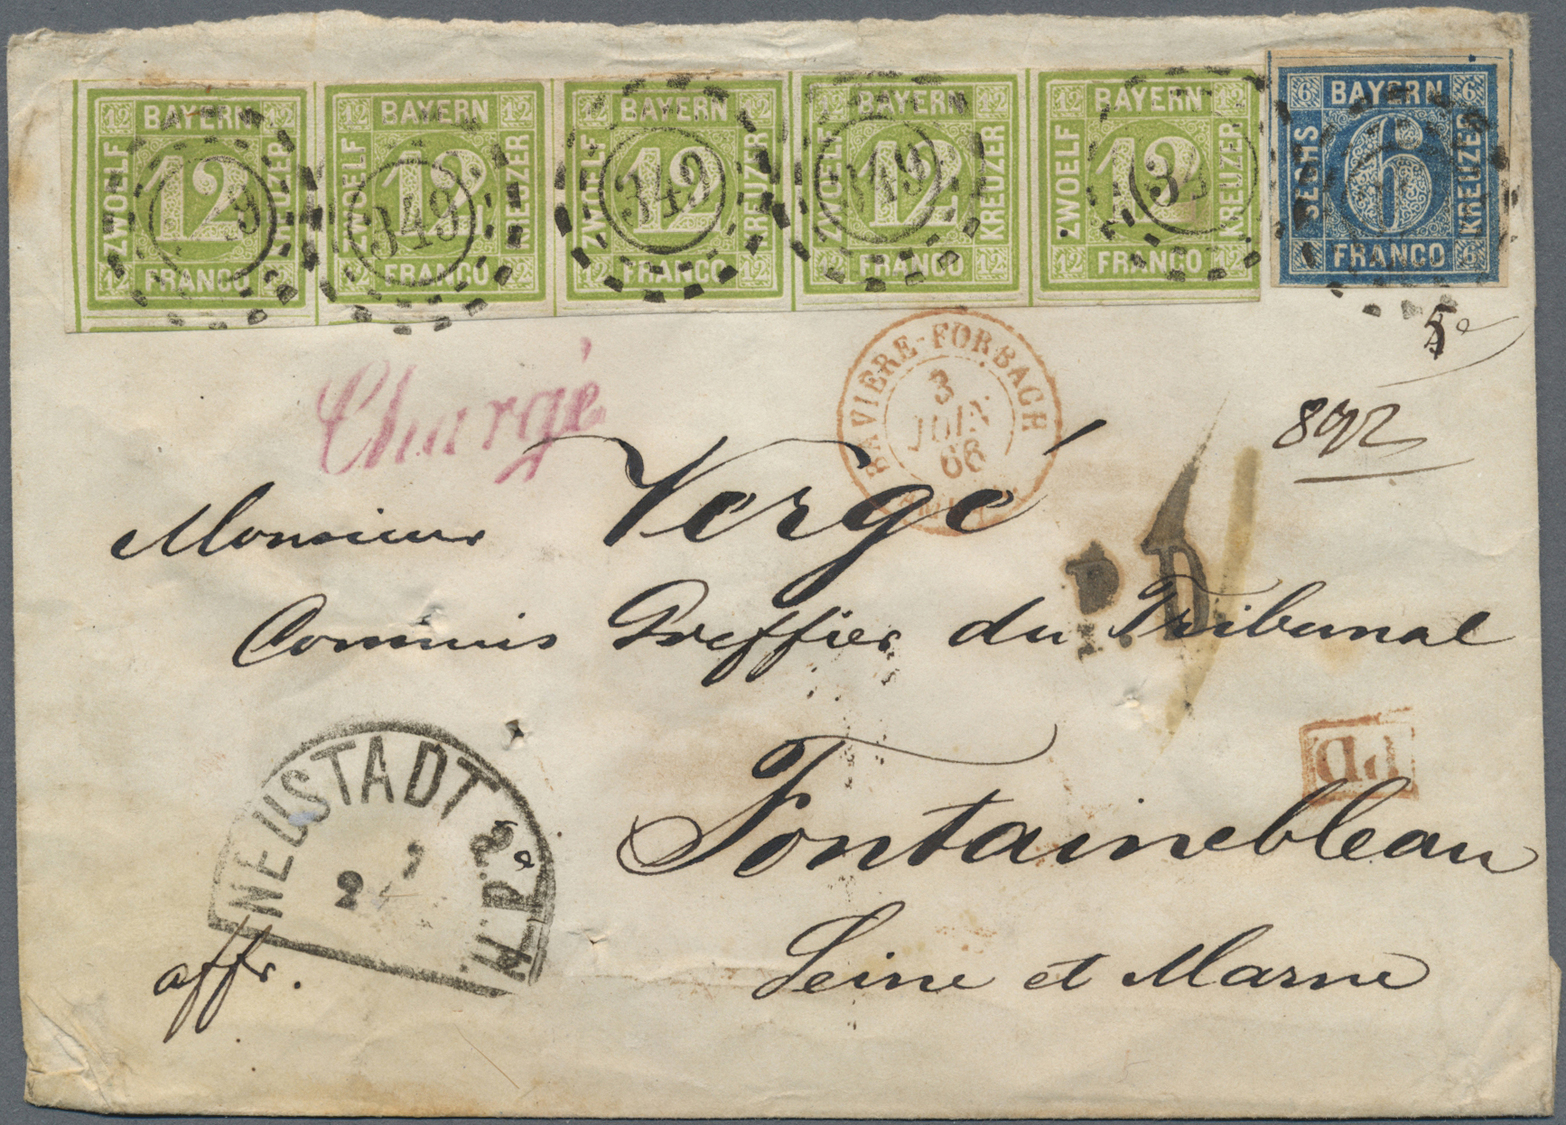 12 BAYERN 12
ZWOELF 12 KREUZER
12 FRANCO 12
12 BAYERN 12
ZWOELF 12 KREUZER
FRANCO
349
12 BAYERN 12
ZWOELF 12 KREUZER
12 FRANCO 12
349
12 BAYERN 12
ZWOELF 12 KREUZER
12 FRANCO 12
349
BAYERN
ZWOELF 12 KREUZER
12 FRANCO 12
34
6 BAYERN 6
SECHS 6 KREUZER
6 FRANCO 6
Chargé
BAVIERE-FORBACH
3
JUIN
66
892
Monsieur Vergé
P.D
Commis Greffier du Tribunal
PD
Fontainebleau
NEUSTADT a.d.H.
2
Seine et Marne
affr.